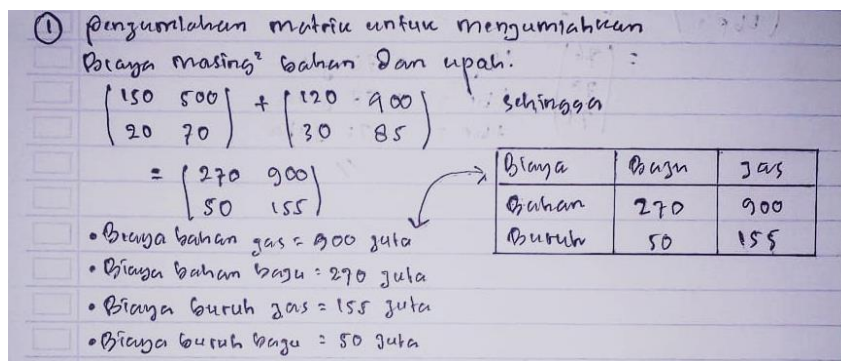 ① Pengumlahan matrik untuk mengumlahkan
Biaya masing² bahan dan upah:
( 150 500 ) + ( 120 900 ) sehingga
( 20 70 ) ( 30 85 )
= ( 270 900 )
( 50 155 )
Biaya Baju gas
Bahan 270 900
Buruh 50 155
• Biaya bahan gas = 900 juta
• Biaya bahan baju = 270 juta
• Biaya buruh gas = 155 juta
• Biaya buruh baju = 50 juta